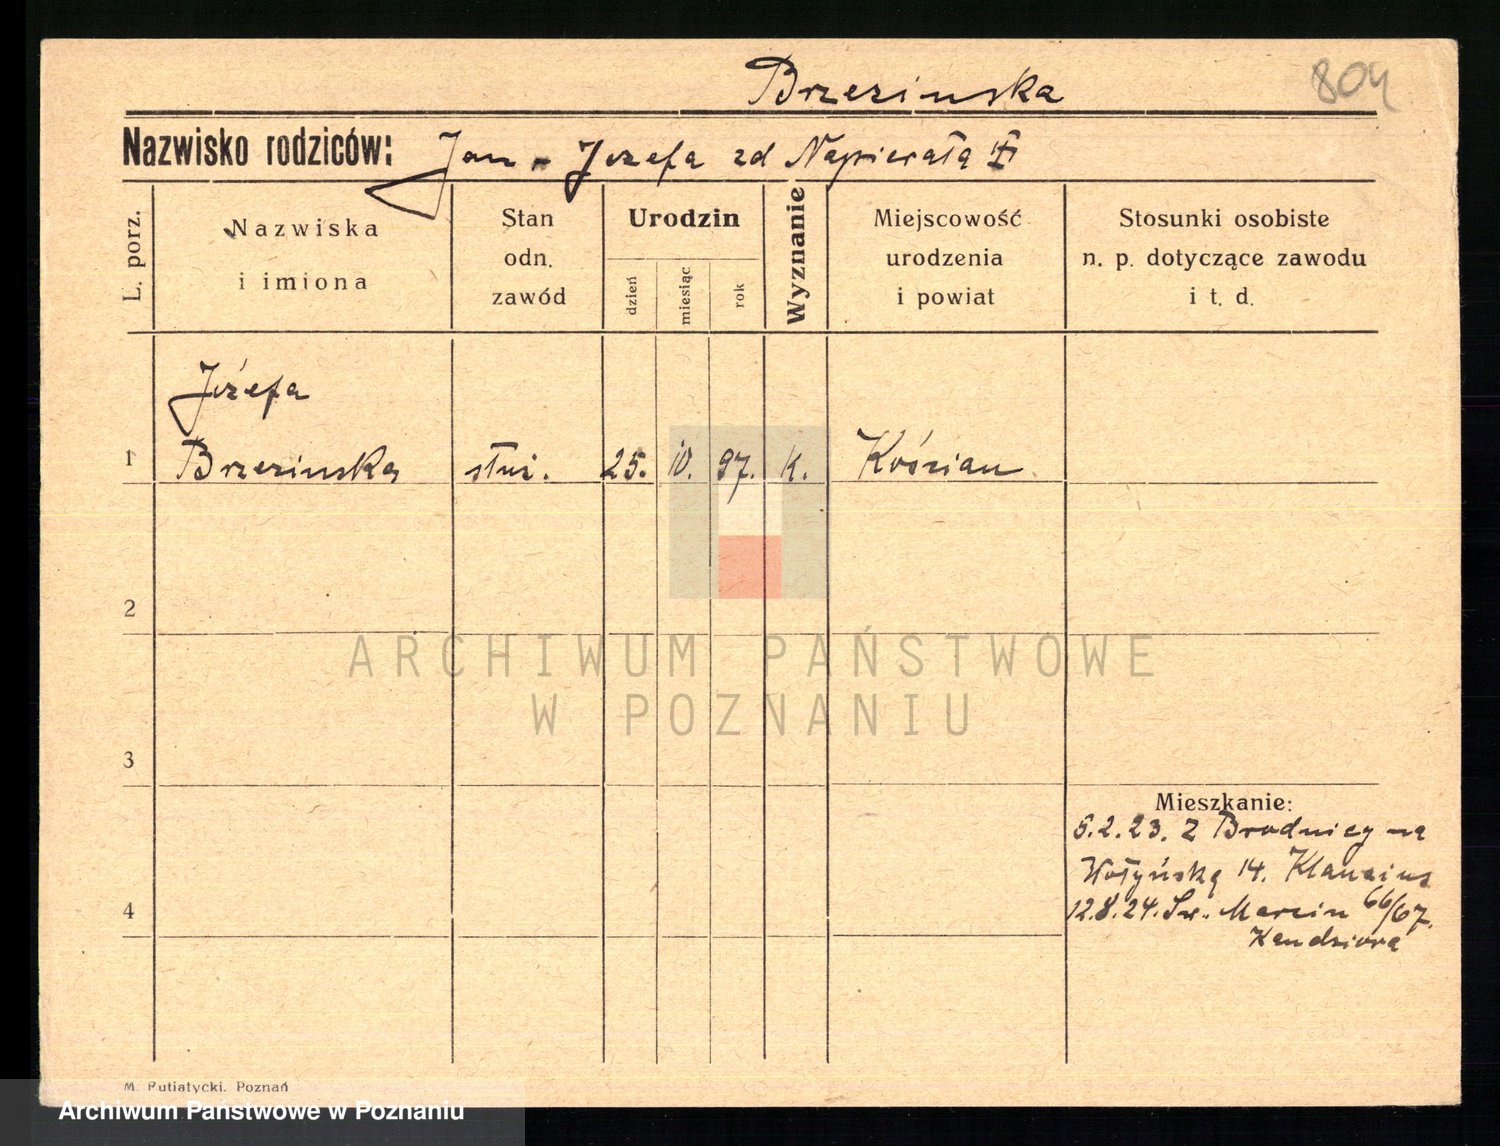 Brzezinska
804
Nazwisko rodziców: Jan - Józefa zd Napierała
L. porz.
Nazwiska i imiona
Stan odn. zawód
Urodzin
dzień
miesiąc
rok
Wyznanie
Miejscowość urodzenia i powiat
Stosunki osobiste n. p. dotyczące zawodu i t. d.
Józefa
1 Brzezinska służ. 25. 10. 97. k. Kościan
2
3
4
ARCHIWUM PAŃSTWOWE
W POZNANIU
Mieszkanie:
5.2.23. Z Brodnicy na
Wołyńską 14.
12.8.24. Św. Marcin 66/67.
Kandziora
M. Putiatycki. Poznań
Archiwum Państwowe w Poznaniu